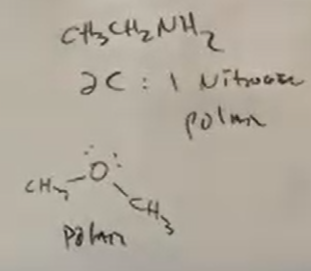 CH3CH2NH2
2C : 1 Nitrogen
polar
:O:
CH3 CH3
Polar